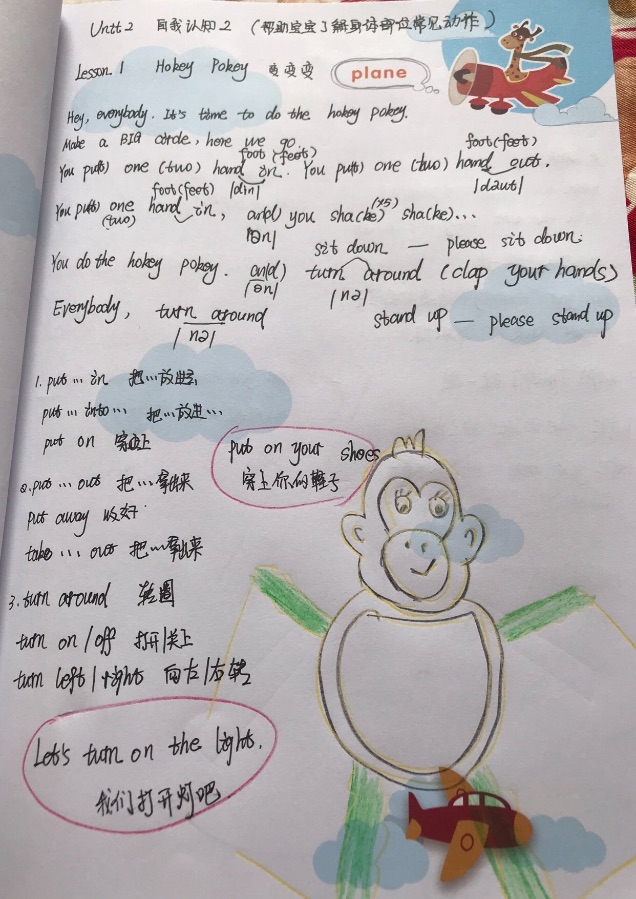 Unit 2 自我认知2 (帮助宝宝了解身体部位常见动作)
Lesson 1 Hokey Pokey 变变变
plane
Hey, everybody. It's time to do the hokey pokey.
Make a BIG circle, here we go.
foot (feet) foot (feet)
You put(s) one (two) hand in. You put(s) one (two) hand out.
foot (feet) |din| |daut|
You put(s) one hand in, an(d) you sha(ke) sha(ke)...
(two) |ən|
sit down — please sit down.
You do the hokey pokey. an(d) turn around (clap your hands)
|ən| |nə|
Everybody, turn around stand up — please stand up
|nə|
1. put ... in 把...放进
put ... into ... 把...放进...
put on 穿上
put on your shoes
穿上你的鞋子
2. put ... out 把...拿出来
put away 收好
take ... out 把...拿出来
3. turn around 转圈
turn on / off 打开/关上
turn left / right 向左/右转
Let's turn on the light.
我们打开灯吧.